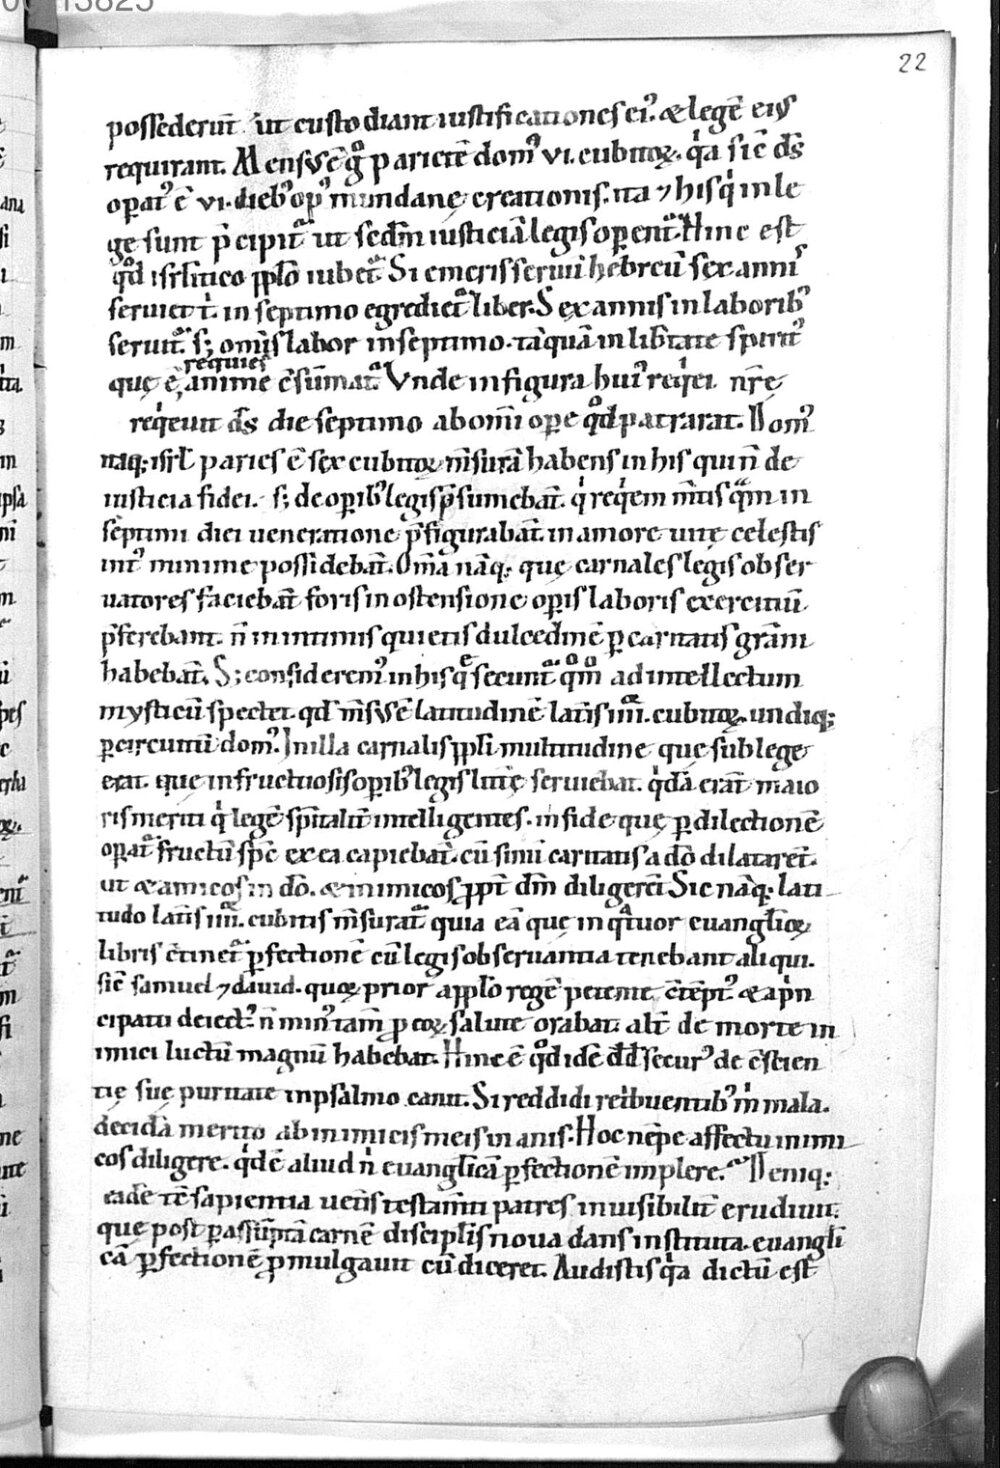 22
possederunt̄ ut custodiant iustificationes ei᷒. & legē eiꝰ
requirant. Mensꝰ ē g̊ parietē domꝰ vi. cubitoꝝ. q̇a sic̄ d̄s
oꝑatꝰ ē vi. diebꝰ opꝰ mundanę creationis. ita ⁊ hi sq̇ in le
ge sunt p̄cipit᷑ ut scd̄m iusticiā legis oꝑent᷑. Hinc est
qd̄ isrl̄itico pp̄lo iubet᷑. Si emeris seruū hebreū sex annis
seruiet t̄. in septimo egrediet᷑ liber. Sex annis in laboribꝰ
seruit᷑. s; om̄is labor in septimo. tāquā in lib̄tate spiritꝰ
requies
quę ē, animę c̄sūmat᷑. Vnde in figura huiꝰ req̇ei nr̄ę
req̇euit d̄s die septimo ab om̄i oꝑe qd̄ patrarat. Domꝰ
itaq; isrl̄ paries ē sex cubitoꝝ m̄surā habens in his qui n̄ de
iusticia fidei. s; de oꝑibꝰ legis p̄sumebāt. q̇ req̇em m̄tis quā in
septimi diei ueneratione p̄figurabāt. in amore uitę celestis
intꝰ minime possidebāt. Om̄a nāq; quę carnales legis obser
uatores faciebāt foris in ostensione oꝑis laboris exercitiū
p̄ferebant. n̄ in intimis quietis dulcedinē ꝑ caritatis gr̄am
habebāt. S; consideremꝰ in his q̄ secunt᷑ qm̊o ad intellectum
mysticū spectet. qd̄ m̄sꝰ ē latitudinē lateris iiii. cubitoꝝ. undiq;
ꝑ circuitū domꝰ. In illa carnalis pp̄li multitudine quę sub lege
erat. quę infructuosis oꝑibꝰ legis litt̄ę seruiebat. q̇dā erāt maio
ris meriti q̇ legē sp̄italit̄ intelligentes. in fide quę ꝑ dilectionē
oꝑat᷑ fructū spē ex ea capiebāt. cū sinū caritatis a dō dilatarēt.
ut & amicos in dō. & inimicos ꝓpt̄ dm̄ diligerēt. Sic nāq; lati
tudo lateris iiii. cubitis m̄surat᷑ quia eā quę in q̇tuor euangl̄ioꝝ
libris c̄tinet᷑ ꝑfectionē cū legis obseruantia tenebant aliqui.
sic̄ samuel ⁊ dauid. quoꝝ prior app̄lo regē petente c̄tēptꝰ & a p̄n
cipatu deiectꝰ n̄ minꝰ tam̄ ꝓ eoꝝ salute orabat. alt̄ de morte in
imici luctū magnū habebat. Hinc ē qd̄ idē dd̄ securꝰ de c̄scien
tię suę puritate in psalmo canit. Si reddidi ret̄buentibꝰ m̄ mala.
decidā merito ab inimicis meis inanis. Hoc nēpe affectu inimi
cos diligere. q̇d ē aliud n̄ euanglicā ꝑfectionē implere. Deniq;
eadē d̄ī sapientia uet̄is testam̄ti patres inuisibilit̄ erudiuit.
que post ꝑ assūptā carnē discipl̄is noua dans instituta. euangli
cā ꝑfectionē ꝓmulgauit cū diceret. Audistis q̇a dictū est